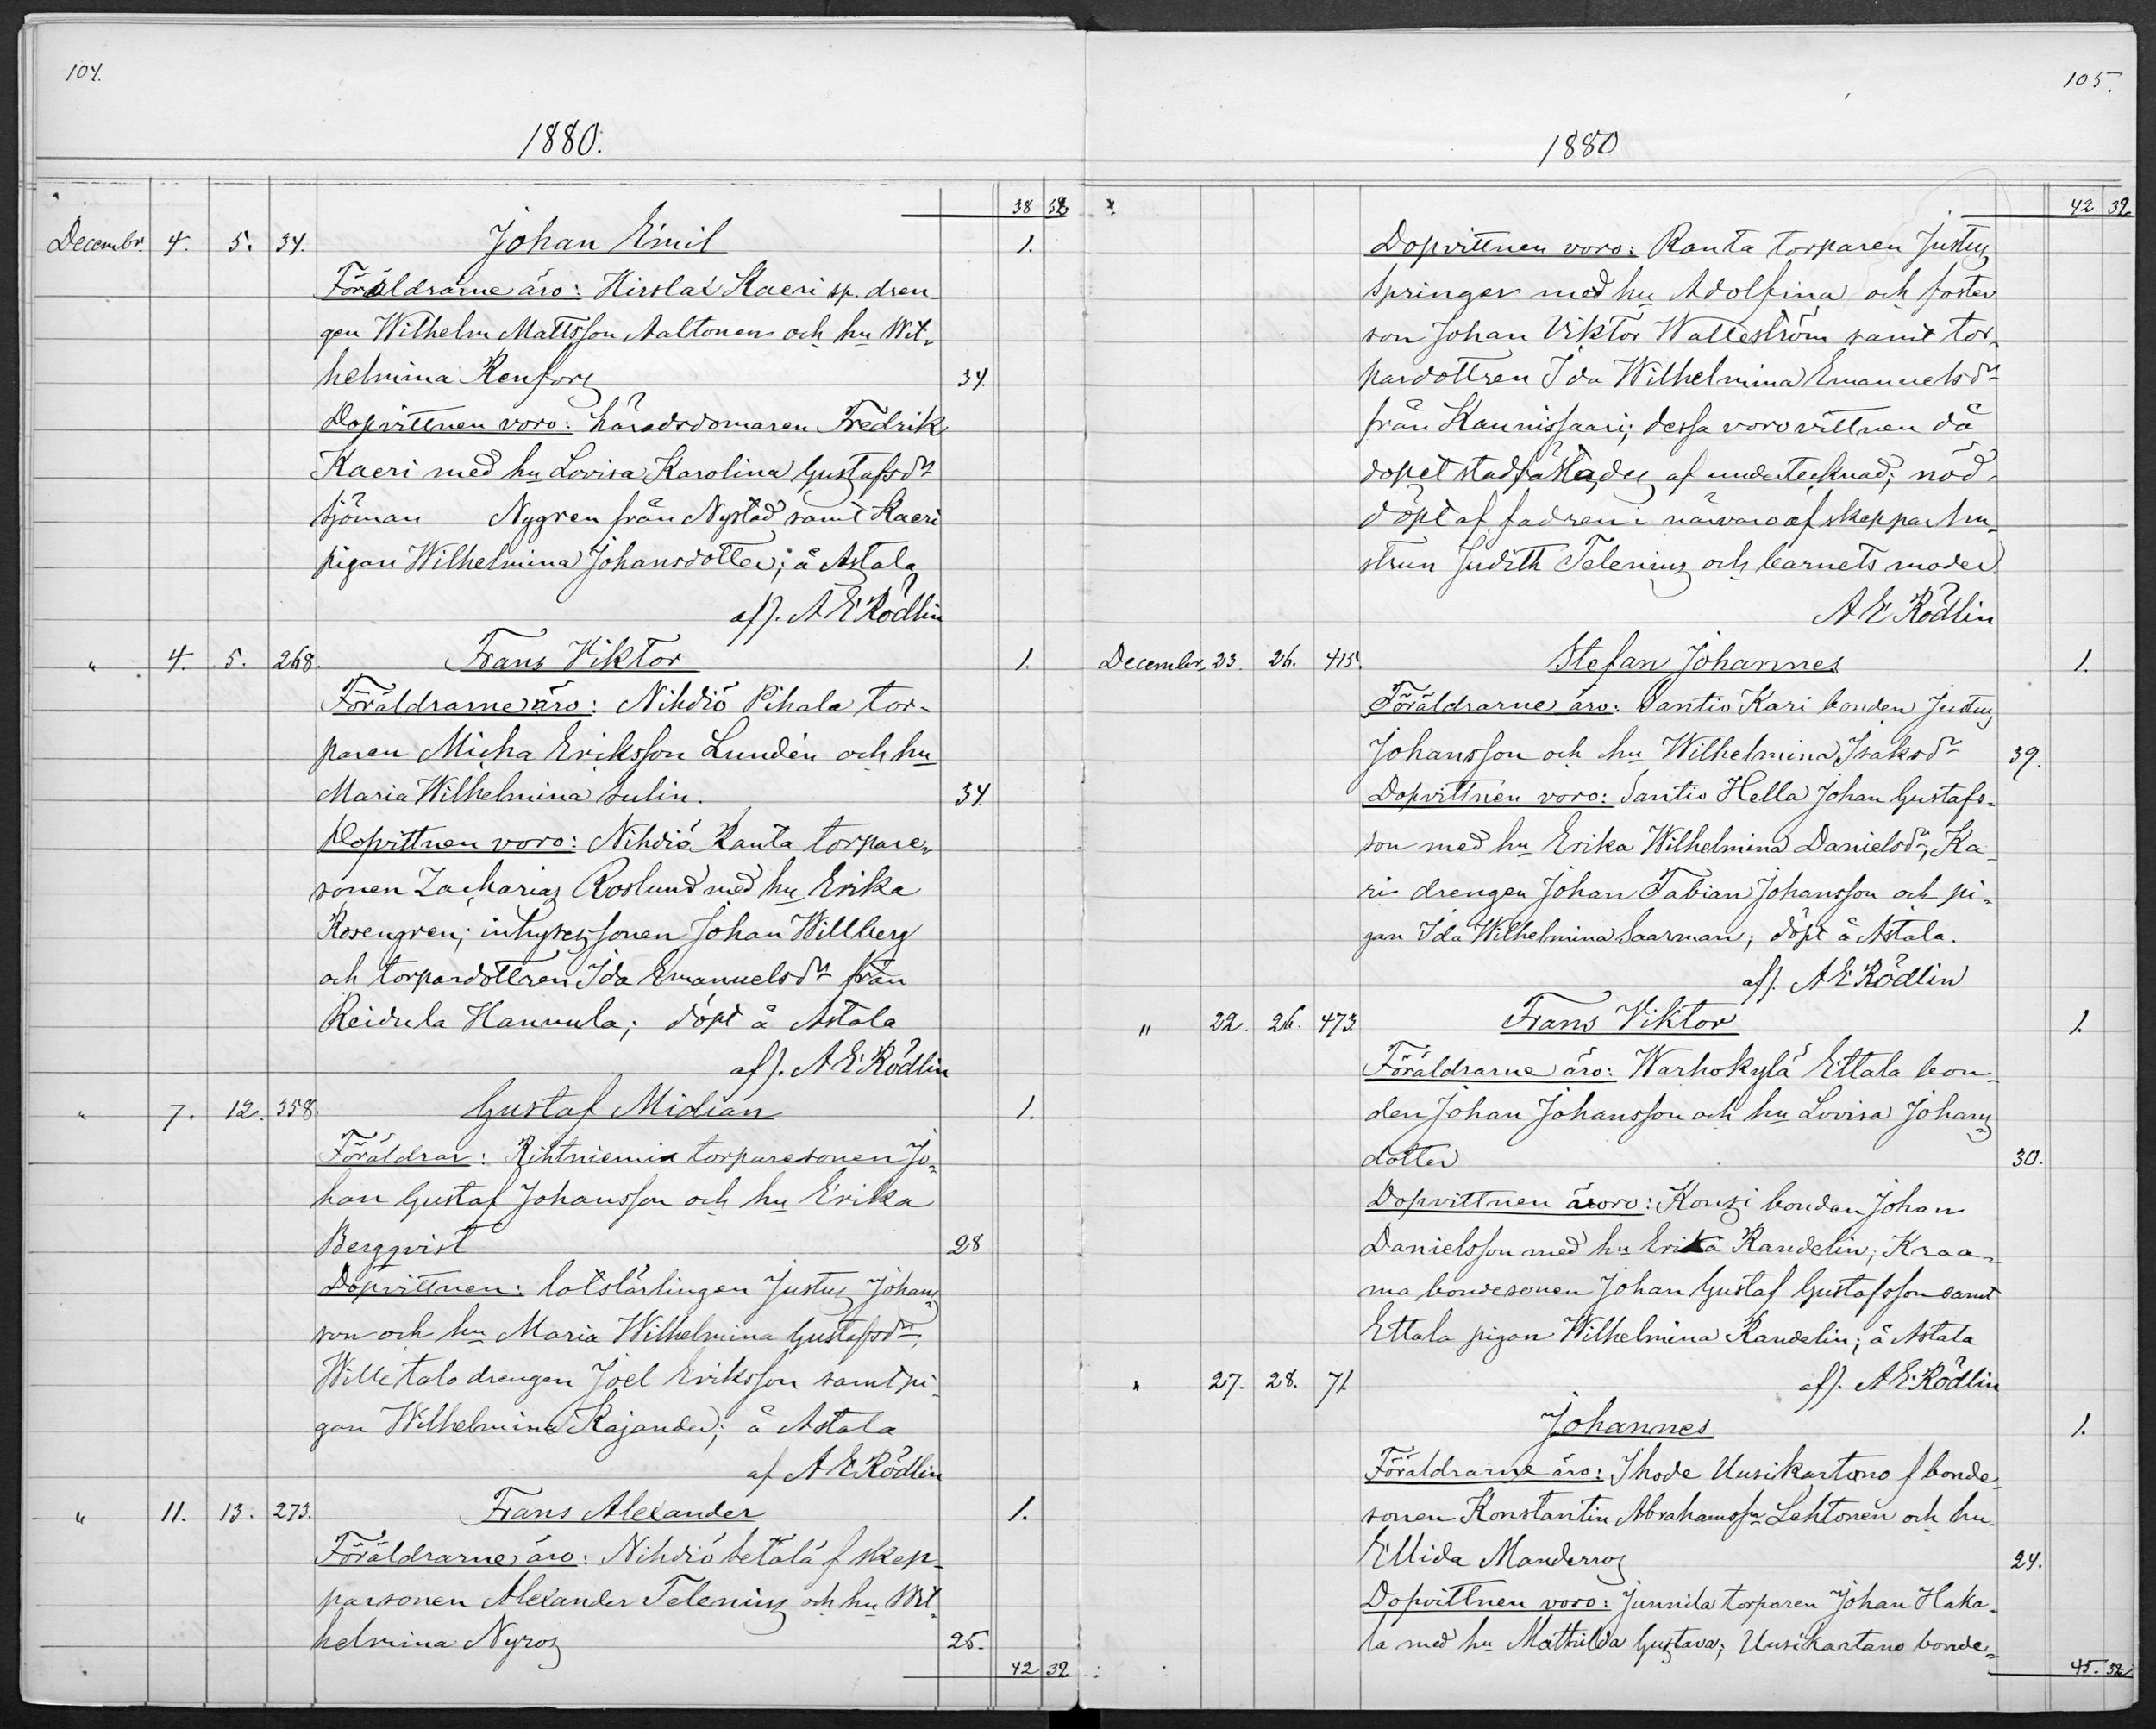 104.
1880.
38 32
Decembr. 4. 5. 34. Johan Emil 1.
Föräldrarne äro: Hirslax Kaeri sp. dren
gen Wilhelm Mattsson Aaltonen och hu Wil-
helmina Renfors 34.
Dopvittnen voro: häradsdomaren Fredrik
Kaeri med hu Lovisa Karolina Gustafsdr
sjöman Nygren från Nystad samt Kaeri
pigan Wilhelmina Johansdotter; å Astala
af J. A E Rödlin
" 4. 5. 268. Frans Viktor 1.
Föräldrarne äro: Nihdiö Pihala tor-
paren Micha Eriksson Lundén och hu
Maria Wilhelmina Sulin. 34.
Dopvittnen voro: Nihdiö Ranta torpare-
sonen Zacharias Roslund med hu Erika
Rosengren; inhysessonen Johan Willberg
och torpardottren Ida Emanuelsdr från
Reidula Hannula; döpt å Astala
af J. A E Rödlin
" 7. 12. 358. Gustaf Midian 1.
Föräldrar: Rihtniemis torparesonen Jo-
han Gustaf Johansson och hu Erika
Bergqvist 28
Dopvittnen: lotslärlingen Justus Johans-
son och hu Maria Wilhelmina Gustafsdr,
Wille talo drengen Joel Eriksson samt pi-
gan Wilhelmina Kajander; å Astala
af A E Rödlin
" 11. 13. 273. Frans Alexander 1.
Föräldrarne äro: Nihdiö Setälä f skep-
parsonen Alexander Telenius och hu Wil-
helmina Nyroos 25.
42 32
105.
1880
42. 32
Dopvittnen voro: Ranta torparen Justus
Springer med hu Adolfina och foster
son Johan Viktor Walleström samt tor-
pardottren Ida Wilhelmina Emanuelsdr
från Kaunissaari; dessa voro vittnen då
dopet stadfästades af undertecknad; nöd-
döpt af fadren i närvaro af skepparhu-
strun Judith Telenius och barnets moder.
A E Rödlin
Decembr. 23. 26. 415. Stefan Johannes 1.
Föräldrarne äro: Santio Kari bonden Justus
Johansson och hu Wilhelmina Isaksdr 39.
Dopvittnen voro: Santio Hella Johan Gustafs-
son med hu Erika Wilhelmina Danielsdr, Ka-
ri drengen Johan Fabian Johansson och pi-
gan Ida Wilhelmina Saarman; döpt å Astala.
af J. A E Rödlin
" 22. 26. 473 Frans Viktor 1.
Föräldrarne äro: Warhokylä Ettala bon-
den Johan Johansson och hu Lovisa Johans-
dotter 30.
Dopvittnen voro: Konsi bonden Johan
Danielsson med hu Erika Randelin; Kraa-
ma bondesonen Johan Gustaf Gustafsson samt
Ettala pigan Wilhelmina Randelin; å Astala
" 27. 28. 71 af J. A E Rödlin
Johannes 1.
Föräldrarne äro: Ihode Uusikartano f bonde-
sonen Konstantin Abrahamssn Lehtonen och hu
Ellida Manderroos 24.
Dopvittnen voro: Junnila torparen Johan Haka-
la med hu Mathilda Gustava; Uusikartano bonde-
45. 32